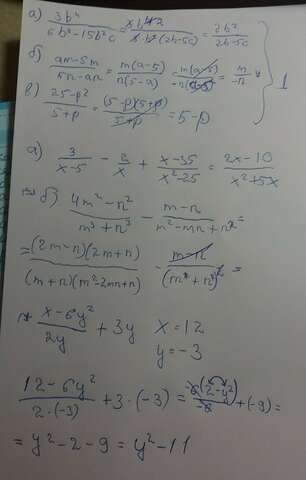 а) 3b⁴ / 6b³-15b²c = 3b⁴² / 3b²(2b-5c) = 2b² / 2b-5c
б) am-5m / 5n-an = m(a-5) / n(5-a) = m(a-5) / -n(a-5) = m / -n
в) 25-p² / 5+p = (5-p)(5+p) / 5+p = 5-p
} 1
а) 3 / x-5 - 2 / x + x-35 / x²-25 = 2x-10 / x²+5x
б) 4m²-n² / m³+n³ - m-n / m²-mn+n² =
= (2m-n)(2m+n) / (m+n)(m²-2mn+n) - m-n / (m+n)² =
x-6y² / 2y + 3y x=12
y=-3
12-6y² / 2·(-3) + 3·(-3) = -6(2-y²) / -6 +(-9) =
= y²-2-9 = y²-11